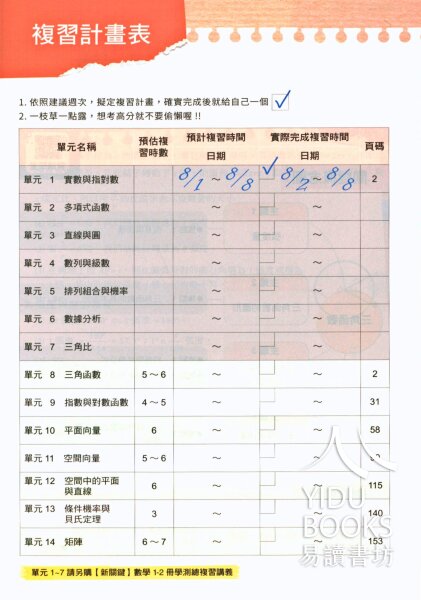 複習計畫表
1. 依照建議週次，擬定複習計畫，確實完成後就給自己一個 ✓
2. 一枝草一點露，想考高分就不要偷懶喔 !!
單元名稱 預估複習時數 預計複習時間 日期 實際完成複習時間 日期 頁碼
單元 1 實數與指對數 8/1 ～ 8/8 ✓ 8/2 ～ 8/8 2
單元 2 多項式函數 ～ ～
單元 3 直線與圓 ～ ～
單元 4 數列與級數 ～ ～
單元 5 排列組合與機率 ～ ～
單元 6 數據分析 ～ ～
單元 7 三角比 ～ ～
單元 8 三角函數 5～6 ～ ～ 2
單元 9 指數與對數函數 4～5 ～ ～ 31
單元 10 平面向量 6 ～ ～ 58
單元 11 空間向量 5～6 ～ ～
單元 12 空間中的平面與直線 6 ～ ～ 115
單元 13 條件機率與貝氏定理 3 ～ ～ 140
單元 14 矩陣 6～7 ～ ～ 153
YIDU
BOOKS
易讀書坊
單元 1~7 請另購【新關鍵】數學 1-2 冊學測總複習講義